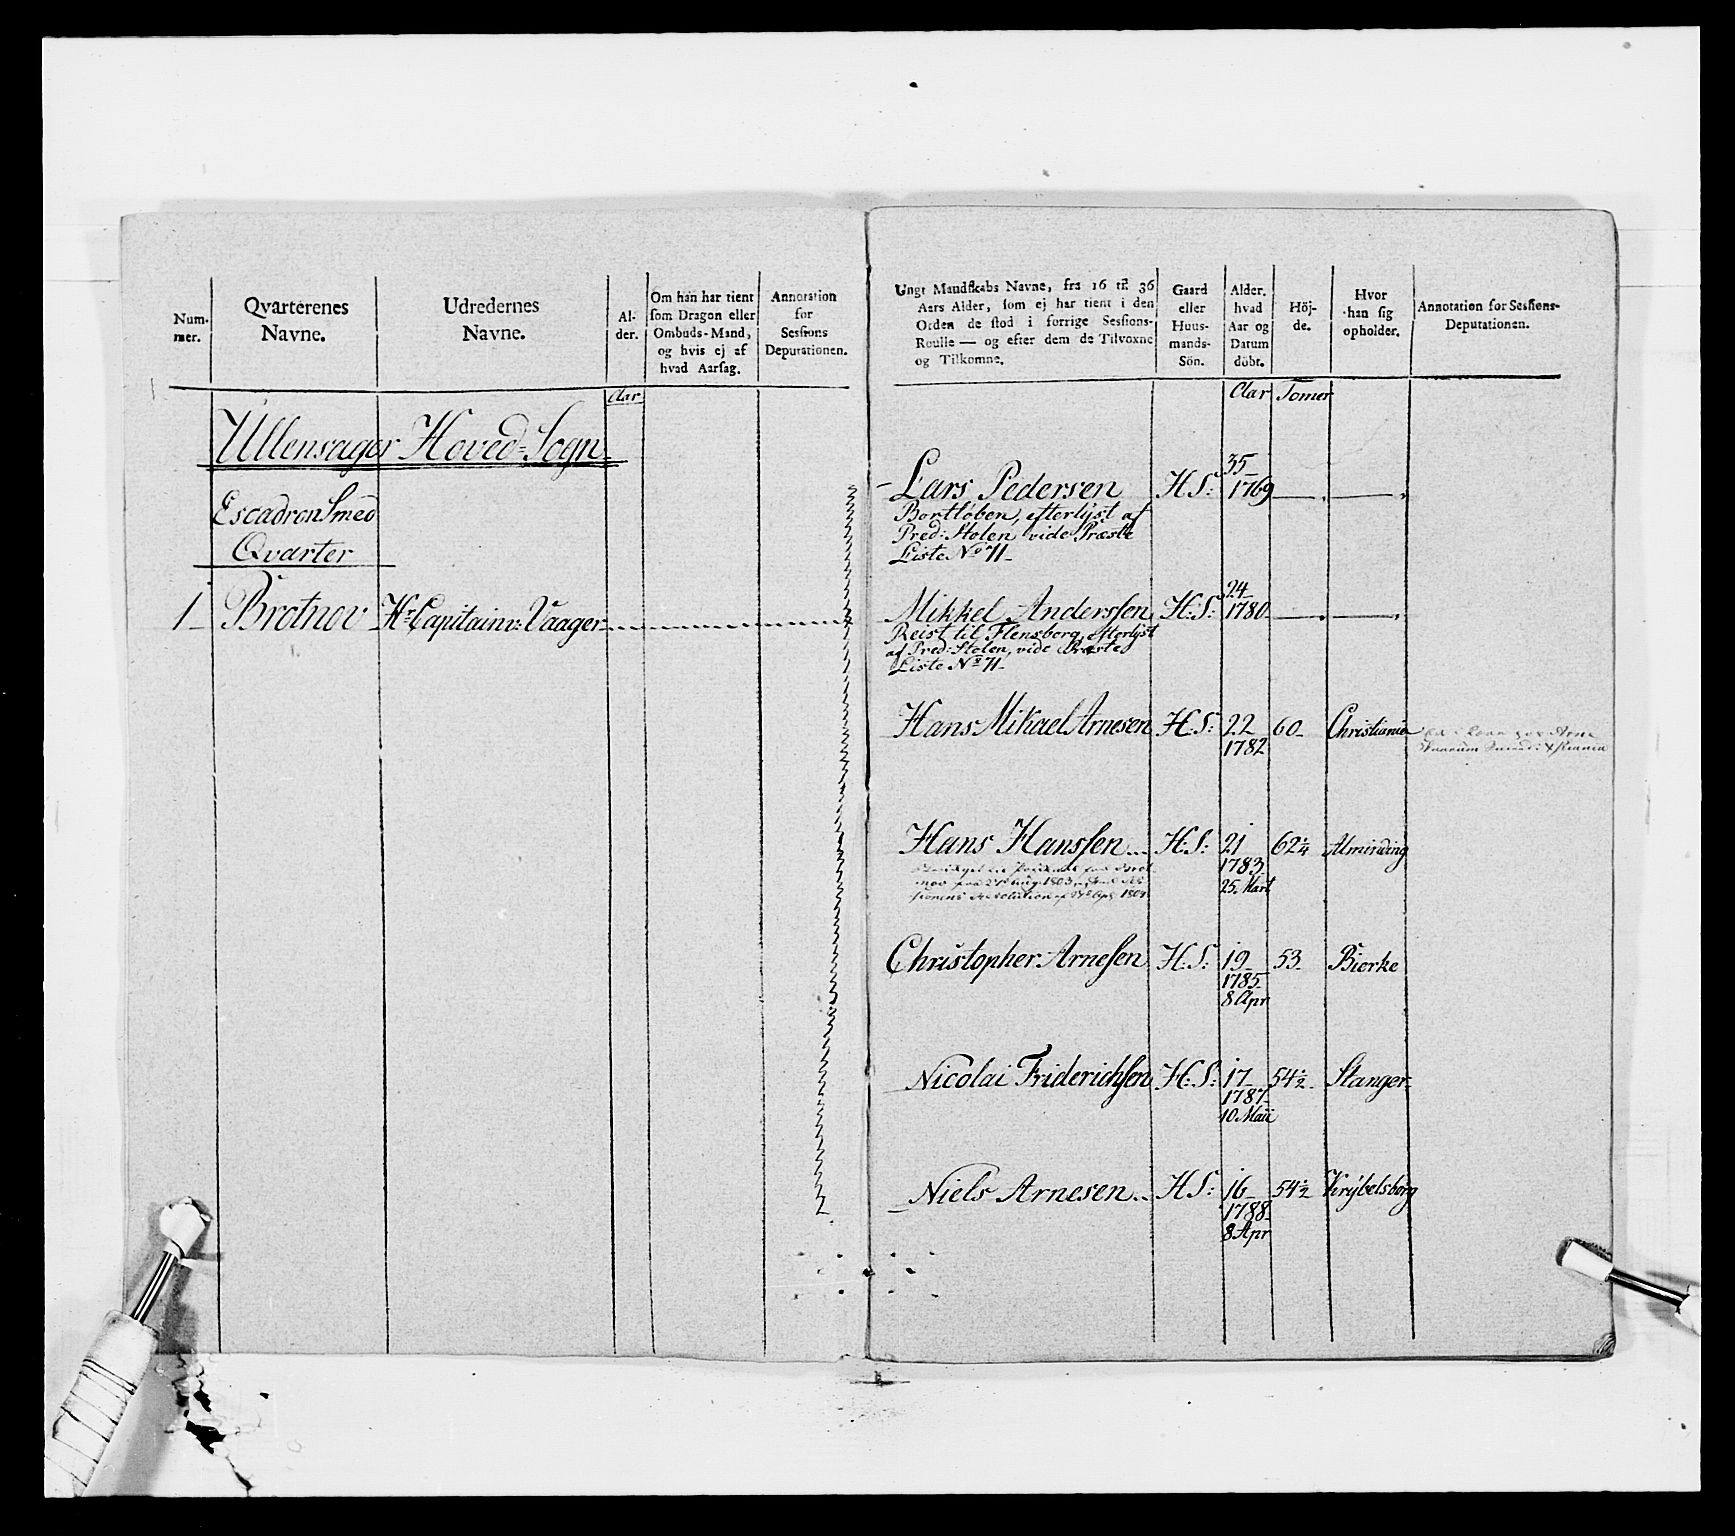 Num-
mer.
Qvarterenes
Navne.
Udredernes
Navne.
Al-
der.
Om han har tient
som Dragon eller
Ombuds-Mand,
og hvis ej af
hvad Aarsag.
Annotation
for
Sessions
Deputationen.
Aar
Ullensager Hoved-Sogn
Escadron Smed
Qvarter
1 Brotnov Hr Capitain v: Vaager
Ungt Mandskabs Navne, fra 16 til 36
Aars Alder, som ej har tient i den
Orden de stod i forrige Sessions-
Roulle — og efter dem de Tilvoxne
og Tilkomne.
Gaard
eller
Huus-
mands-
Sön.
Alder.
hvad
Aar og
Datum
döbt.
Höj-
de.
Hvor
han sig
opholder.
Annotation for Sessions-
Deputationen.
Aar Tomer
Lars Pedersen H.S: 35 1769
Bortlöben, efterlyst af
Præd: Stolen vide Præste
Liste No 11
Mikkel Anderssen H:S: 24 1780
Reist til Flensborg, efterlyst
af Præd: Stolen, vide Præste
Liste No 11
Hans Mikael Arnesen H:S: 22 60 Christiania
1782
Hans Hanssen H:S: 21 62¼ Alminding
1783
25. Mart
Christopher Arnesen H:S: 19 53 Bierke
1785
8 Apr
Nicolai Friderichsen H:S: 17 54½ Stanger
1787
10 Maii
Niels Arnesen H S: 16 54½ Krybelsborg
1788
8 Apr